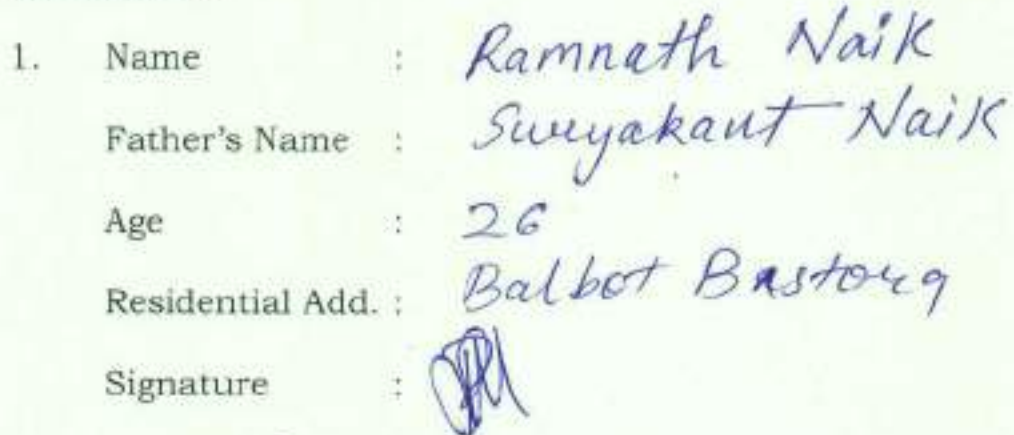 1. Name : Ramnath Naik
Father's Name : Suryakant Naik
Age : 26
Residential Add. : Balbot Bastora
Signature :